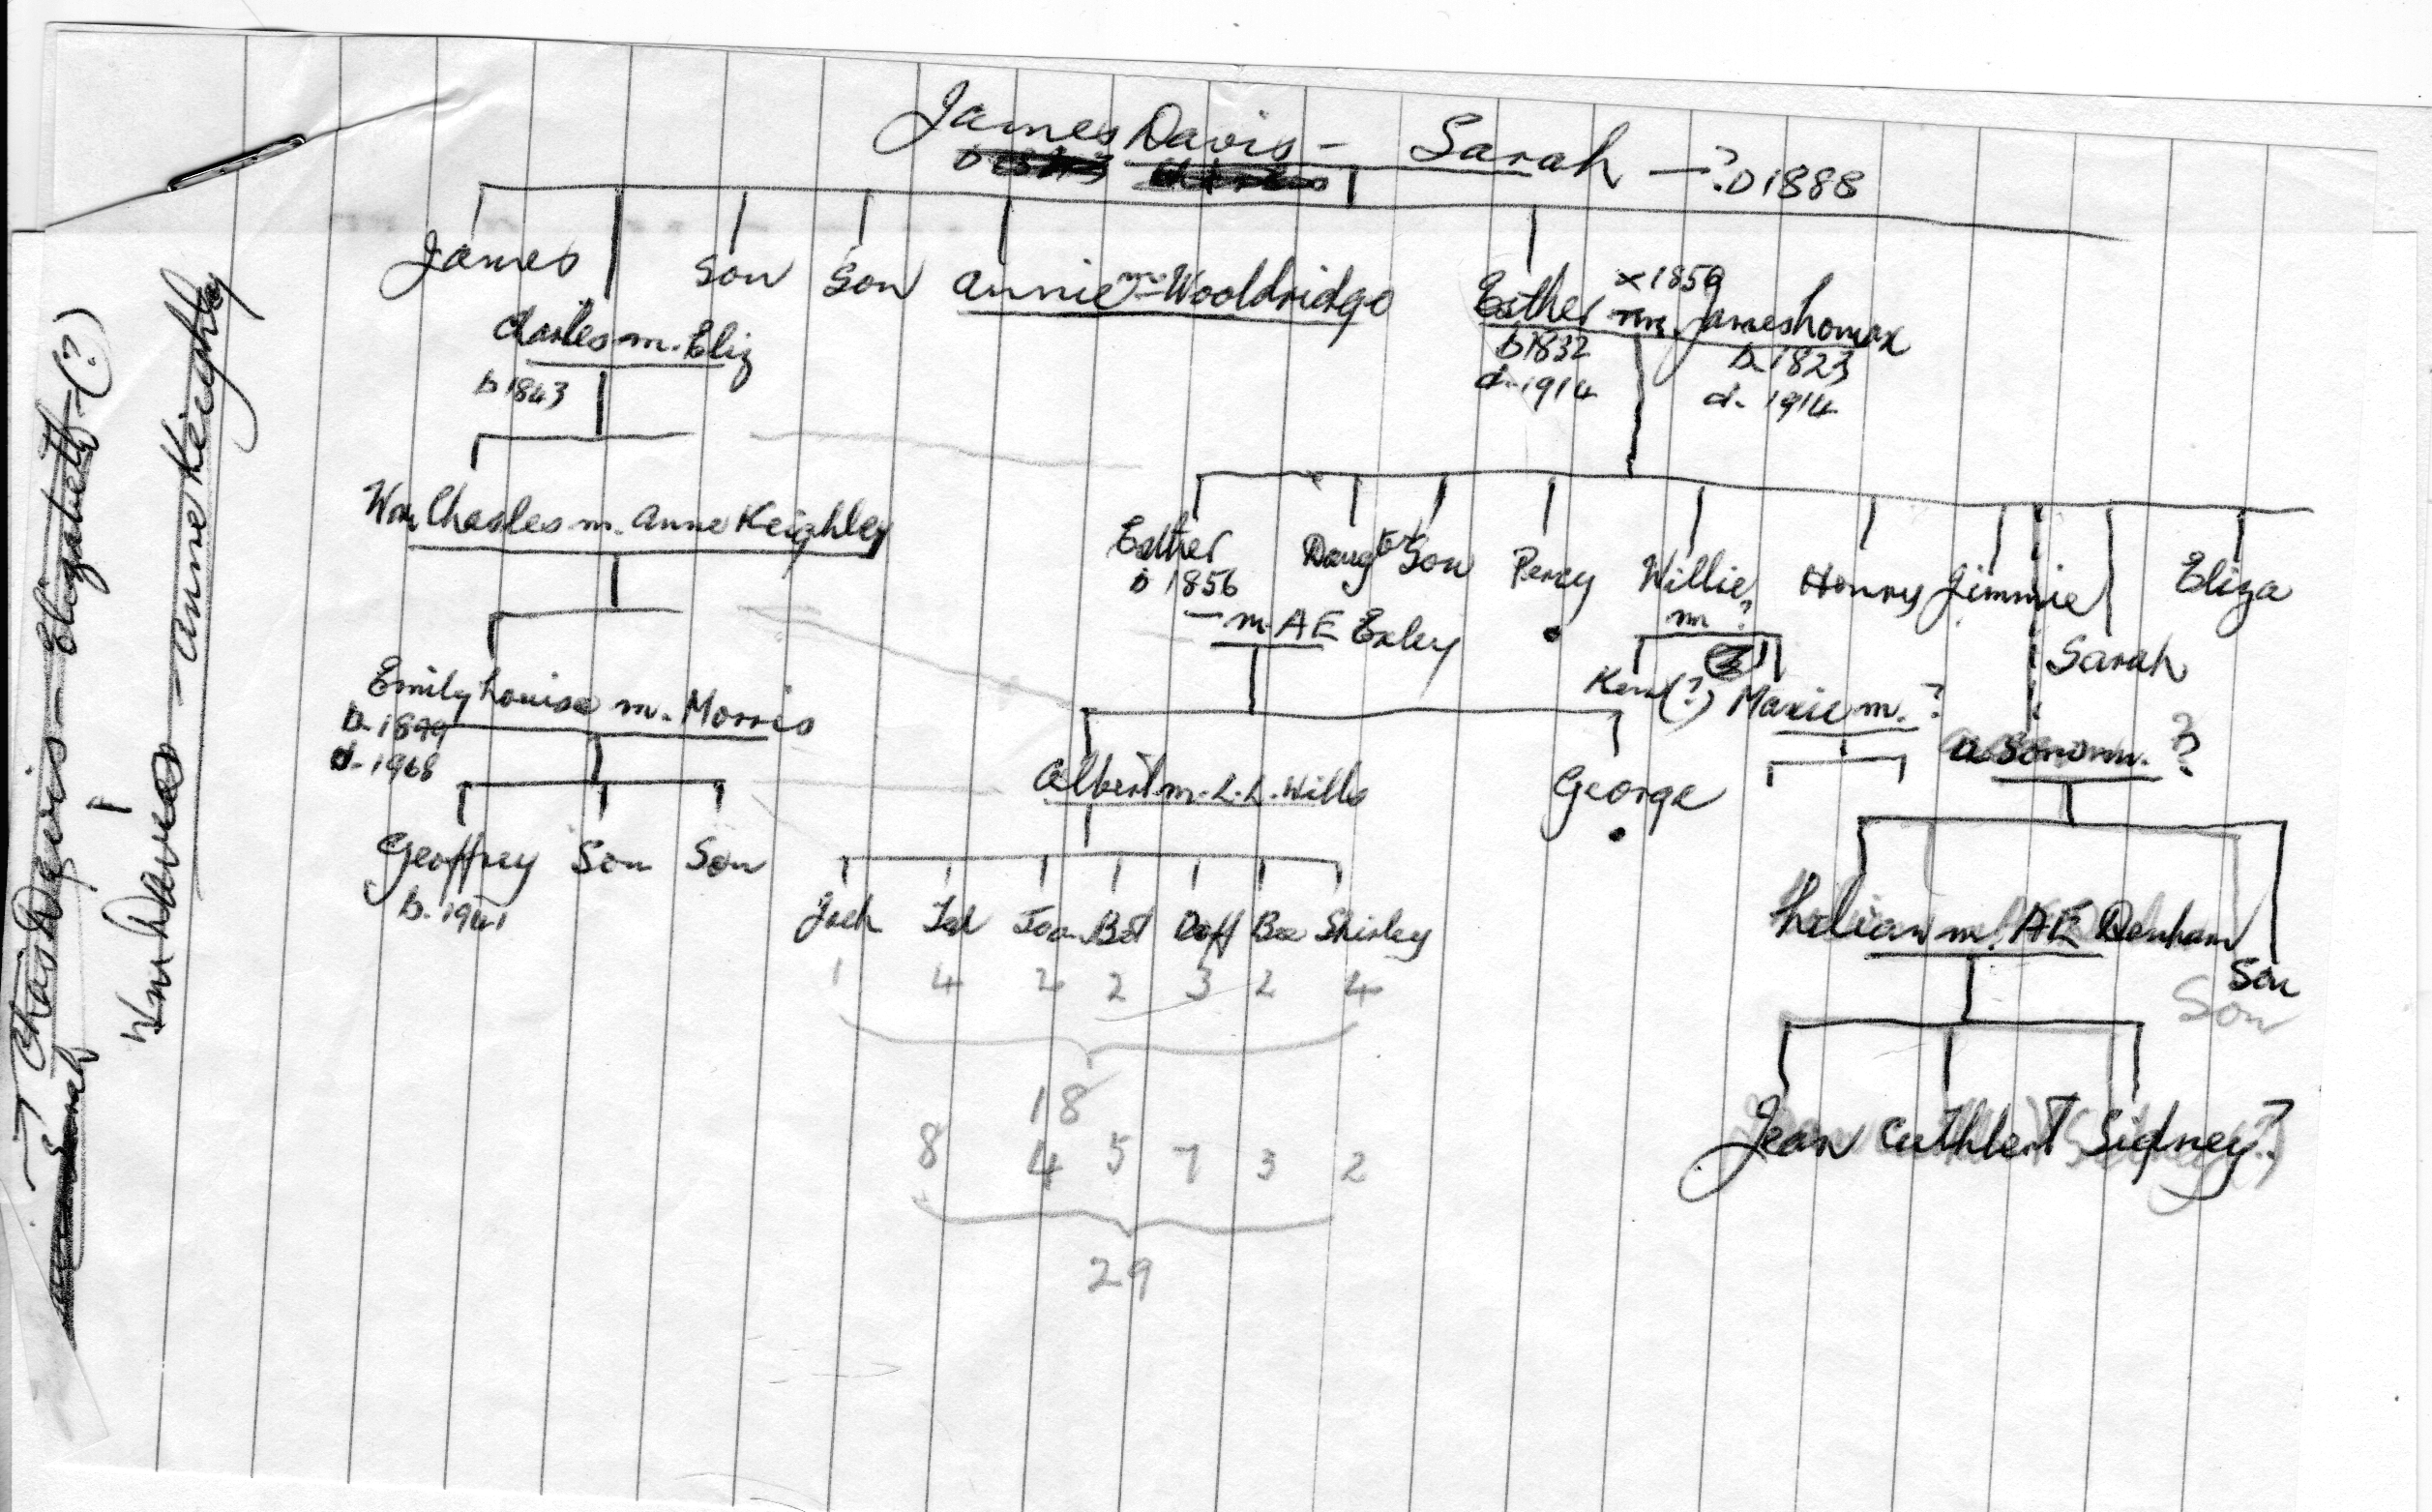 James Davis - Sarah - ? D 1888
James Son Son Annie m - Wooldridge
x 1850
Esther m James Lomax
Charles m. Eliz
b 1832 b. 1823
b 1843
d. 1914 d. 1914
Wm Charles m. Anne Keighley
Esther Daughter Son Percy Willie Henry Jimmie Eliza
b 1856 m ?
- m. AE Exley
Sarah
Emily Louise m. Morris
b. 1899
d. 1968
(?) Marie m. ?
a son m. ?
Albert m. L. L. Wills George
Geoffrey Son Son
b. 1941
Jack Ted Joan Bet Doff Bee Shirley
1 4 2 2 3 2 4
18
8 4 5 7 3 2
29
Lilian m. AE Denham
Son
Son
Jean Cuthbert Sidney?
Chas Davis - Elizabeth - (?)
Sarah
Wm Davies - Anne Keighley